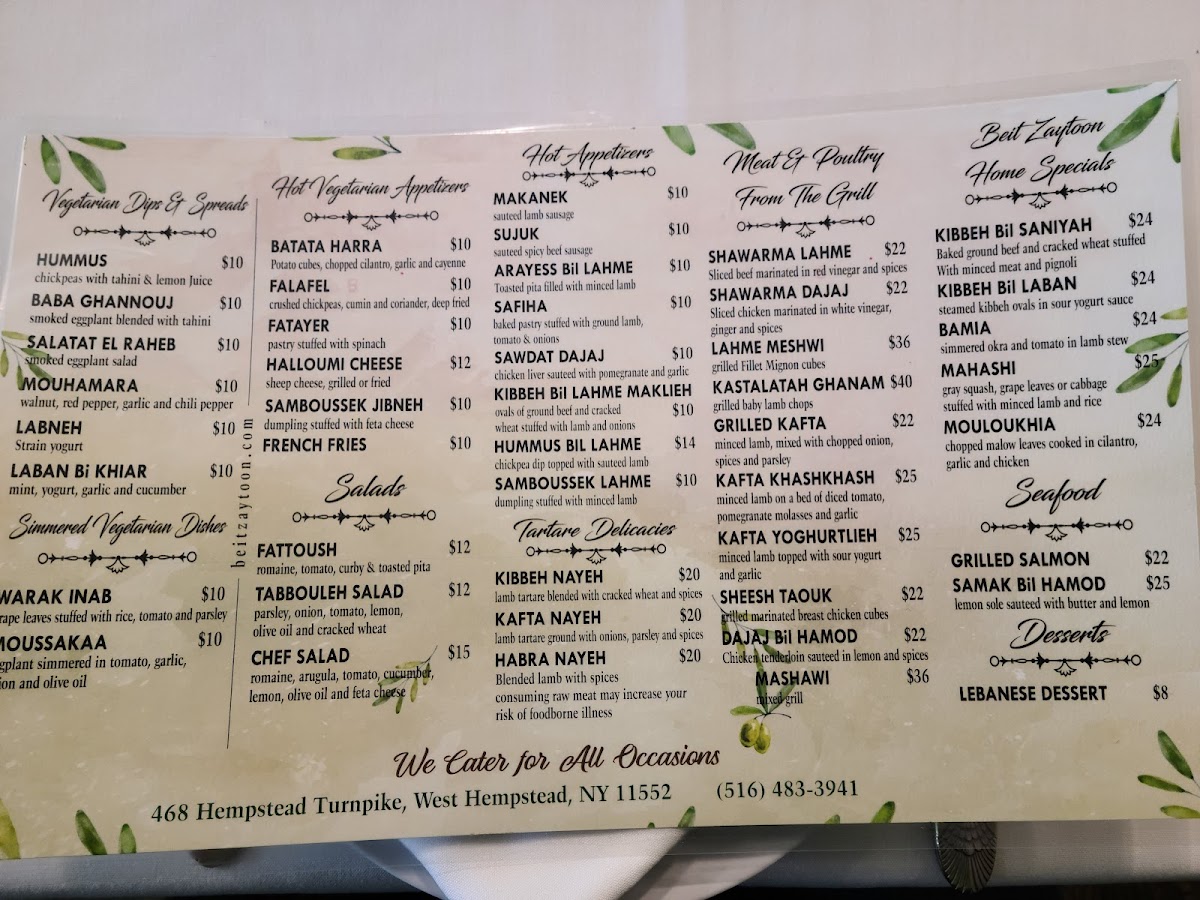 Vegetarian Dips & Spreads
HUMMUS $10
chickpeas with tahini & lemon Juice
BABA GHANNOUJ $10
smoked eggplant blended with tahini
SALATAT EL RAHEB $10
smoked eggplant salad
MOUHAMARA $10
walnut, red pepper, garlic and chili pepper
LABNEH $10
Strain yogurt
LABAN Bi KHIAR $10
mint, yogurt, garlic and cucumber
Simmered Vegetarian Dishes
WARAK INAB $10
rape leaves stuffed with rice, tomato and parsley
MOUSSAKAA $10
gplant simmered in tomato, garlic,
ion and olive oil
beitzaytoon.com
Hot Vegetarian Appetizers
BATATA HARRA $10
Potato cubes, chopped cilantro, garlic and cayenne
FALAFEL $10
crushed chickpeas, cumin and coriander, deep fried
FATAYER $10
pastry stuffed with spinach
HALLOUMI CHEESE $12
sheep cheese, grilled or fried
SAMBOUSSEK JIBNEH $10
dumpling stuffed with feta cheese
FRENCH FRIES $10
Salads
FATTOUSH $12
romaine, tomato, curby & toasted pita
TABBOULEH SALAD $12
parsley, onion, tomato, lemon,
olive oil and cracked wheat
CHEF SALAD $15
romaine, arugula, tomato, cucumber,
lemon, olive oil and feta cheese
Hot Appetizers
MAKANEK $10
sauteed lamb sausage
SUJUK $10
sauteed spicy beef sausage
ARAYESS Bil LAHME $10
Toasted pita filled with minced lamb
SAFIHA $10
baked pastry stuffed with ground lamb,
tomato & onions
SAWDAT DAJAJ $10
chicken liver sauteed with pomegranate and garlic
KIBBEH Bil LAHME MAKLIEH
ovals of ground beef and cracked $10
wheat stuffed with lamb and onions
HUMMUS BIL LAHME $14
chickpea dip topped with sauteed lamb
SAMBOUSSEK LAHME $10
dumpling stuffed with minced lamb
Tartare Delicacies
KIBBEH NAYEH $20
lamb tartare blended with cracked wheat and spices
KAFTA NAYEH $20
lamb tartare ground with onions, parsley and spices
HABRA NAYEH $20
Blended lamb with spices
consuming raw meat may increase your
risk of foodborne illness
Meat & Poultry
From The Grill
SHAWARMA LAHME $22
Sliced beef marinated in red vinegar and spices
SHAWARMA DAJAJ $22
Sliced chicken marinated in white vinegar,
ginger and spices
LAHME MESHWI $36
grilled Fillet Mignon cubes
KASTALATAH GHANAM $40
grilled baby lamb chops
GRILLED KAFTA $22
minced lamb, mixed with chopped onion,
spices and parsley
KAFTA KHASHKHASH $25
minced lamb on a bed of diced tomato,
pomegranate molasses and garlic
KAFTA YOGHURTLIEH $25
minced lamb topped with sour yogurt
and garlic
SHEESH TAOUK $22
grilled marinated breast chicken cubes
DAJAJ Bil HAMOD $22
Chicken tenderloin sauteed in lemon and spices
MASHAWI $36
mixed grill
Beit Zaytoon
Home Specials
KIBBEH Bil SANIYAH $24
Baked ground beef and cracked wheat stuffed
With minced meat and pignoli
KIBBEH Bil LABAN $24
steamed kibbeh ovals in sour yogurt sauce
BAMIA $24
simmered okra and tomato in lamb stew
MAHASHI $25
gray squash, grape leaves or cabbage
stuffed with minced lamb and rice
MOULOUKHIA $24
chopped malow leaves cooked in cilantro,
garlic and chicken
Seafood
GRILLED SALMON $22
SAMAK Bil HAMOD $25
lemon sole sauteed with butter and lemon
Desserts
LEBANESE DESSERT $8
We Cater for All Occasions
468 Hempstead Turnpike, West Hempstead, NY 11552 (516) 483-3941